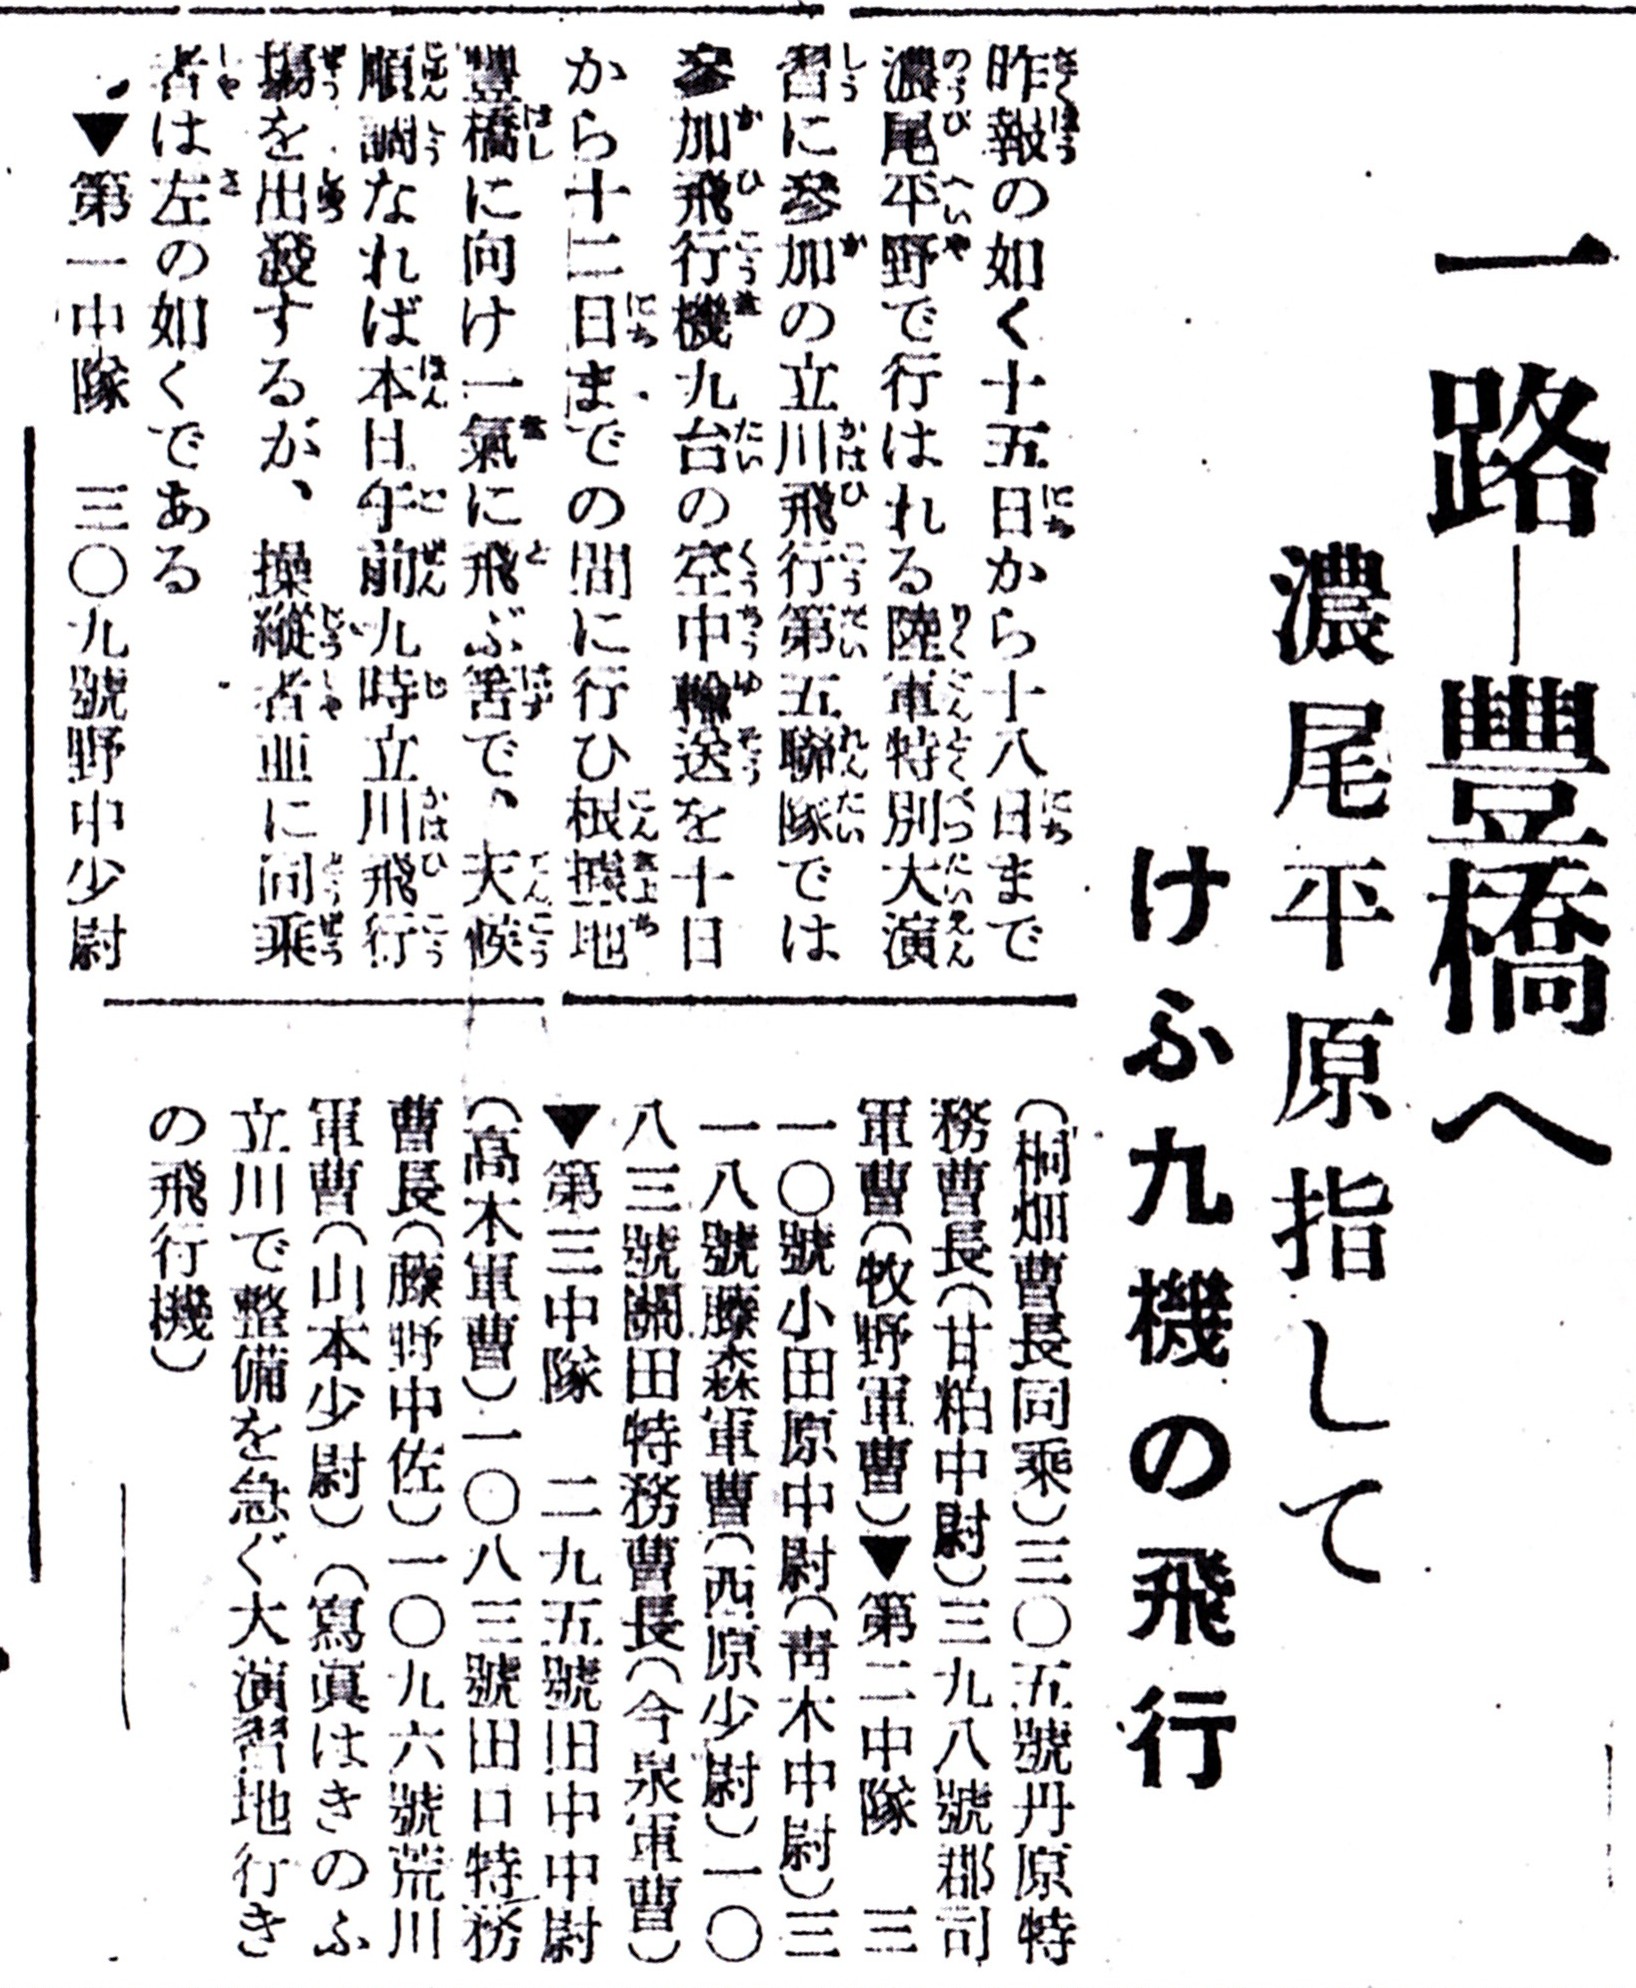 一路―豐橋へ
濃尾平原指して
けふ九機の飛行
昨報の如く十五日から十八日まで
濃尾平野で行はれる陸軍特別大演
習に參加の立川飛行第五聯隊では
參加飛行機九台の空中輸送を十日
から十二日までの間に行ひ根據地
豐橋に向け一氣に飛ぶ筈で、天候
順調なれば本日午前九時立川飛行
場を出發するが、操縱者並に同乘
者は左の如くである
▼第一中隊　三〇九號野中少尉
(桐畑曹長同乘)三〇五號丹原特
務曹長(甘粕中尉)三九八號郡司
軍曹(牧野軍曹)▼第二中隊　三
一〇號小田原中尉(靑木中尉)三
一八號藤森軍曹(西原少尉)一〇
八三號關田特務曹長(今泉軍曹)
▼第三中隊　二九五號田中中尉
(高木軍曹)一〇八三號田口特務
曹長(藤野中佐)一〇九六號荒川
軍曹(山本少尉)(寫眞はきのふ
立川で整備を急ぐ大演習地行き
の飛行機)